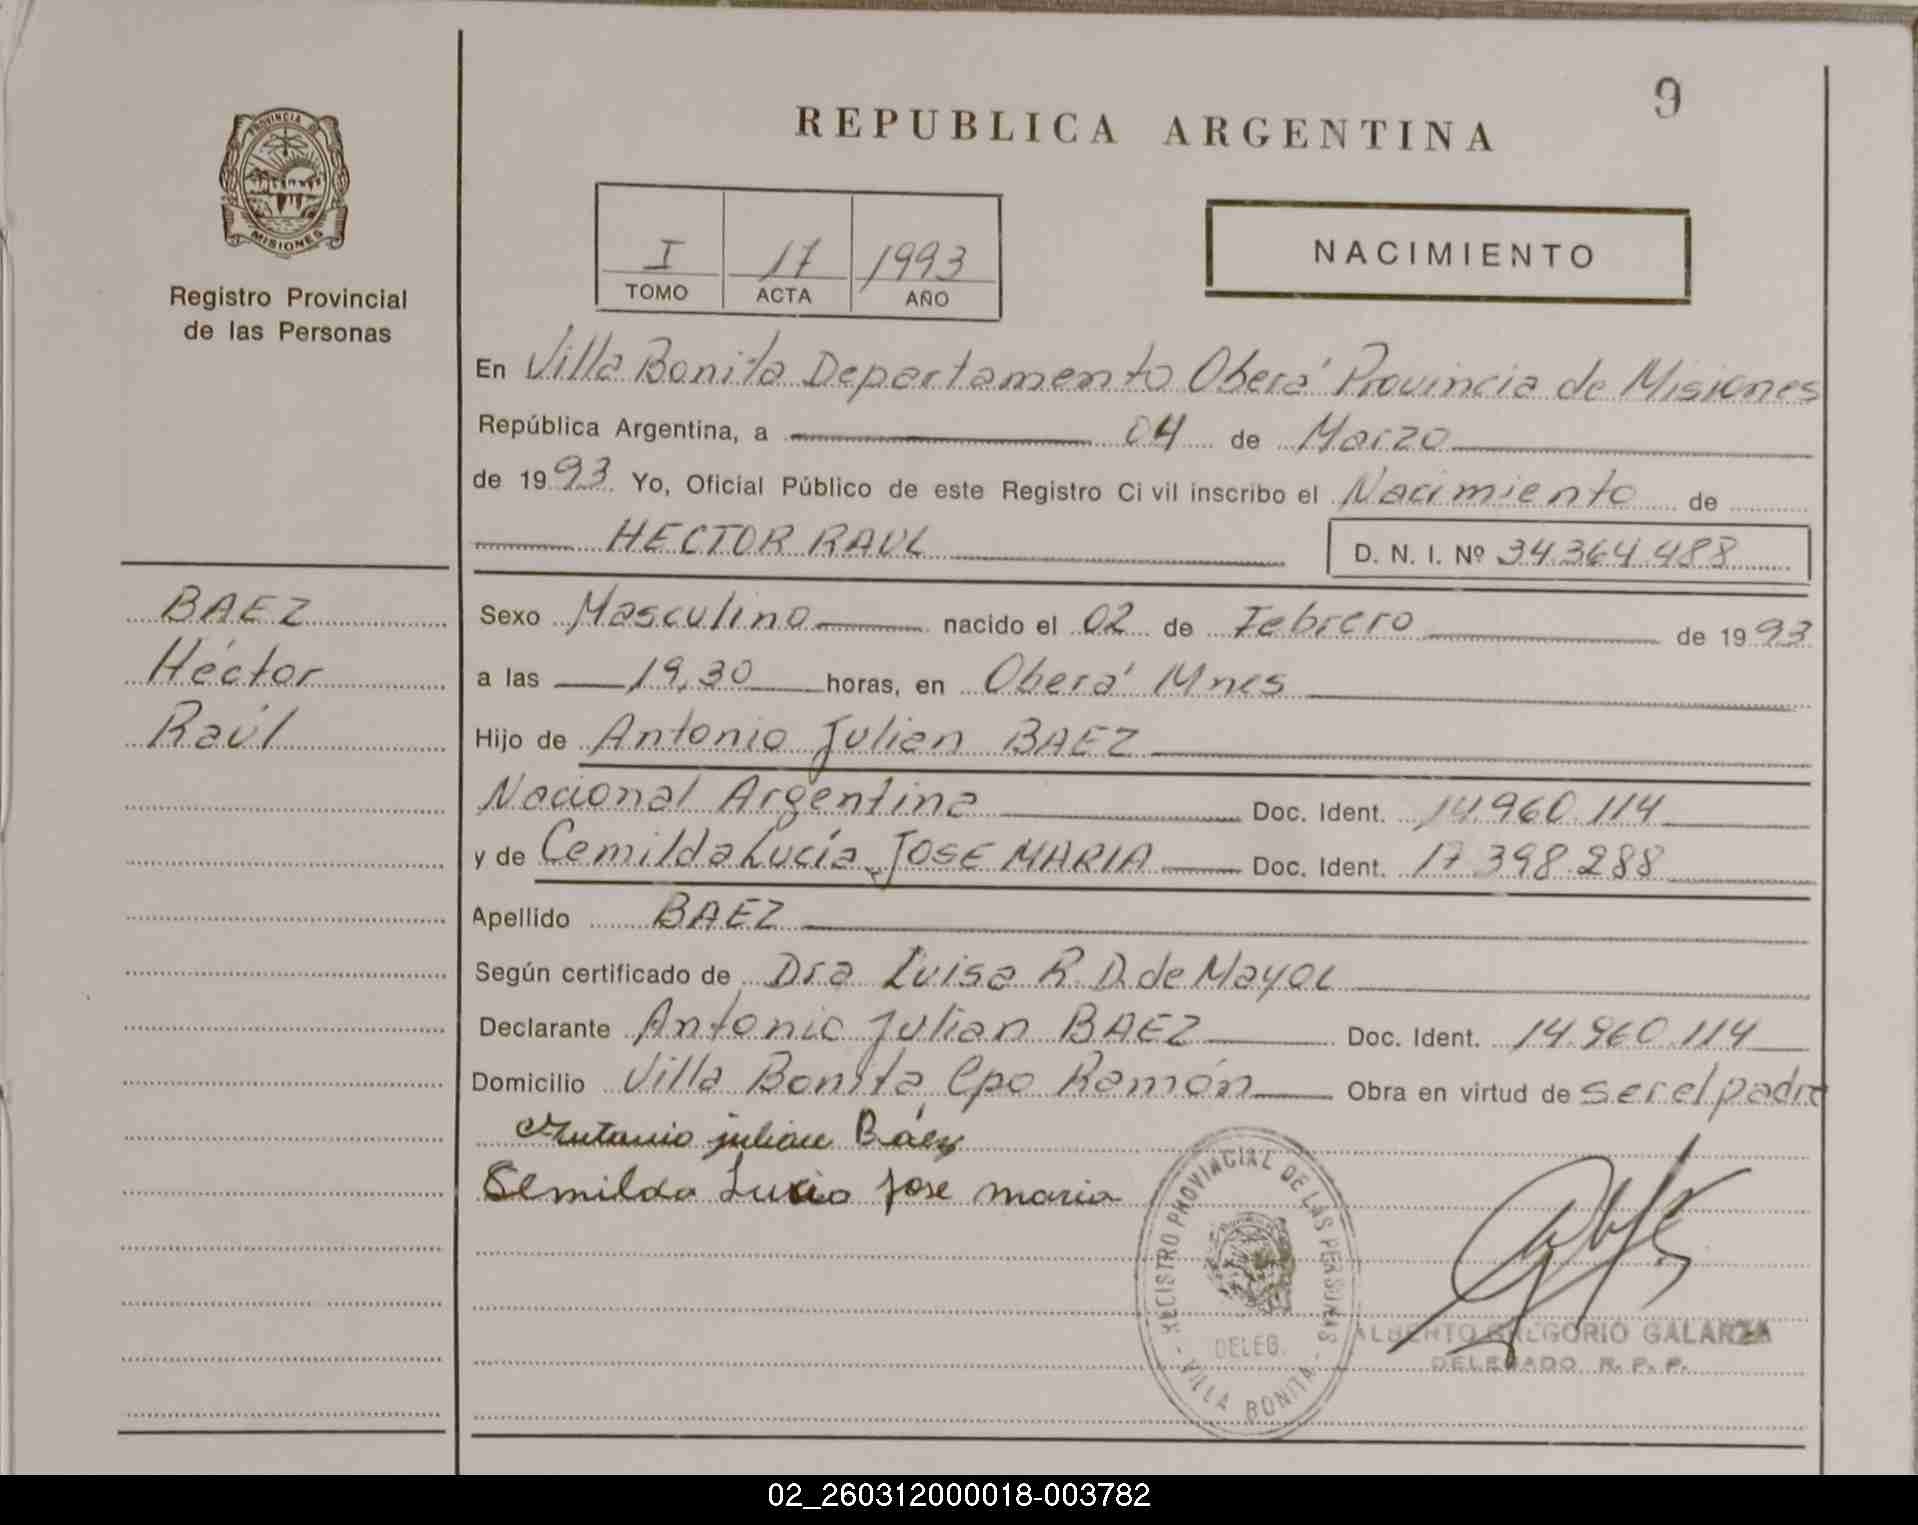 9
REPUBLICA ARGENTINA
PROVINCIA DE
MISIONES
Registro Provincial
de las Personas
I 17 1993
TOMO ACTA AÑO
NACIMIENTO
En Villa Bonita Departamento Oberá Provincia de Misiones
República Argentina, a 04 de Marzo
de 1993 Yo, Oficial Público de este Registro Ci vil inscribo el Nacimiento de
HECTOR RAUL D. N. I. Nº 34.364.488
BAEZ
Héctor
Raúl
Sexo Masculino nacido el 02 de Febrero de 1993
a las 19,30 horas, en Oberá Mnes
Hijo de Antonio Julian BAEZ
Nacional Argentina Doc. Ident. 14.960.114
y de Cemilda Lucía JOSE MARIA Doc. Ident. 17.398.288
Apellido BAEZ
Según certificado de Dra Luisa R. D. de Mayol
Declarante Antonio Julian BAEZ Doc. Ident. 14.960.114
Domicilio Villa Bonita Cpo Ramón Obra en virtud de ser el padre
Antonio julian Báez
Semilda Lucia Jose maria
REGISTRO PROVINCIAL DE LAS PERSONAS
DELEG.
- VILLA BONITA -
ALBERTO GREGORIO GALARZA
DELEGADO R. P. P.
02_260312000018-003782